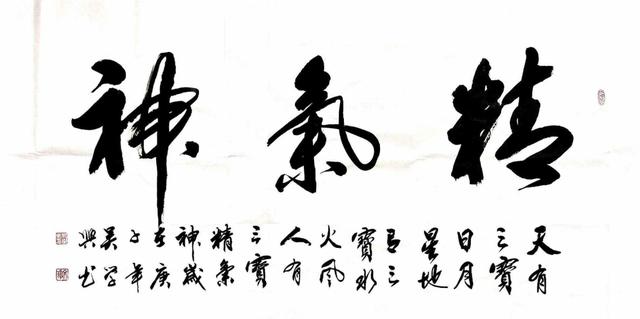 精氣神
天有
三寶
日月
星地
有三
寶水
火風
人有
三寶
精氣
神歲
在庚
子年
吴学
興书